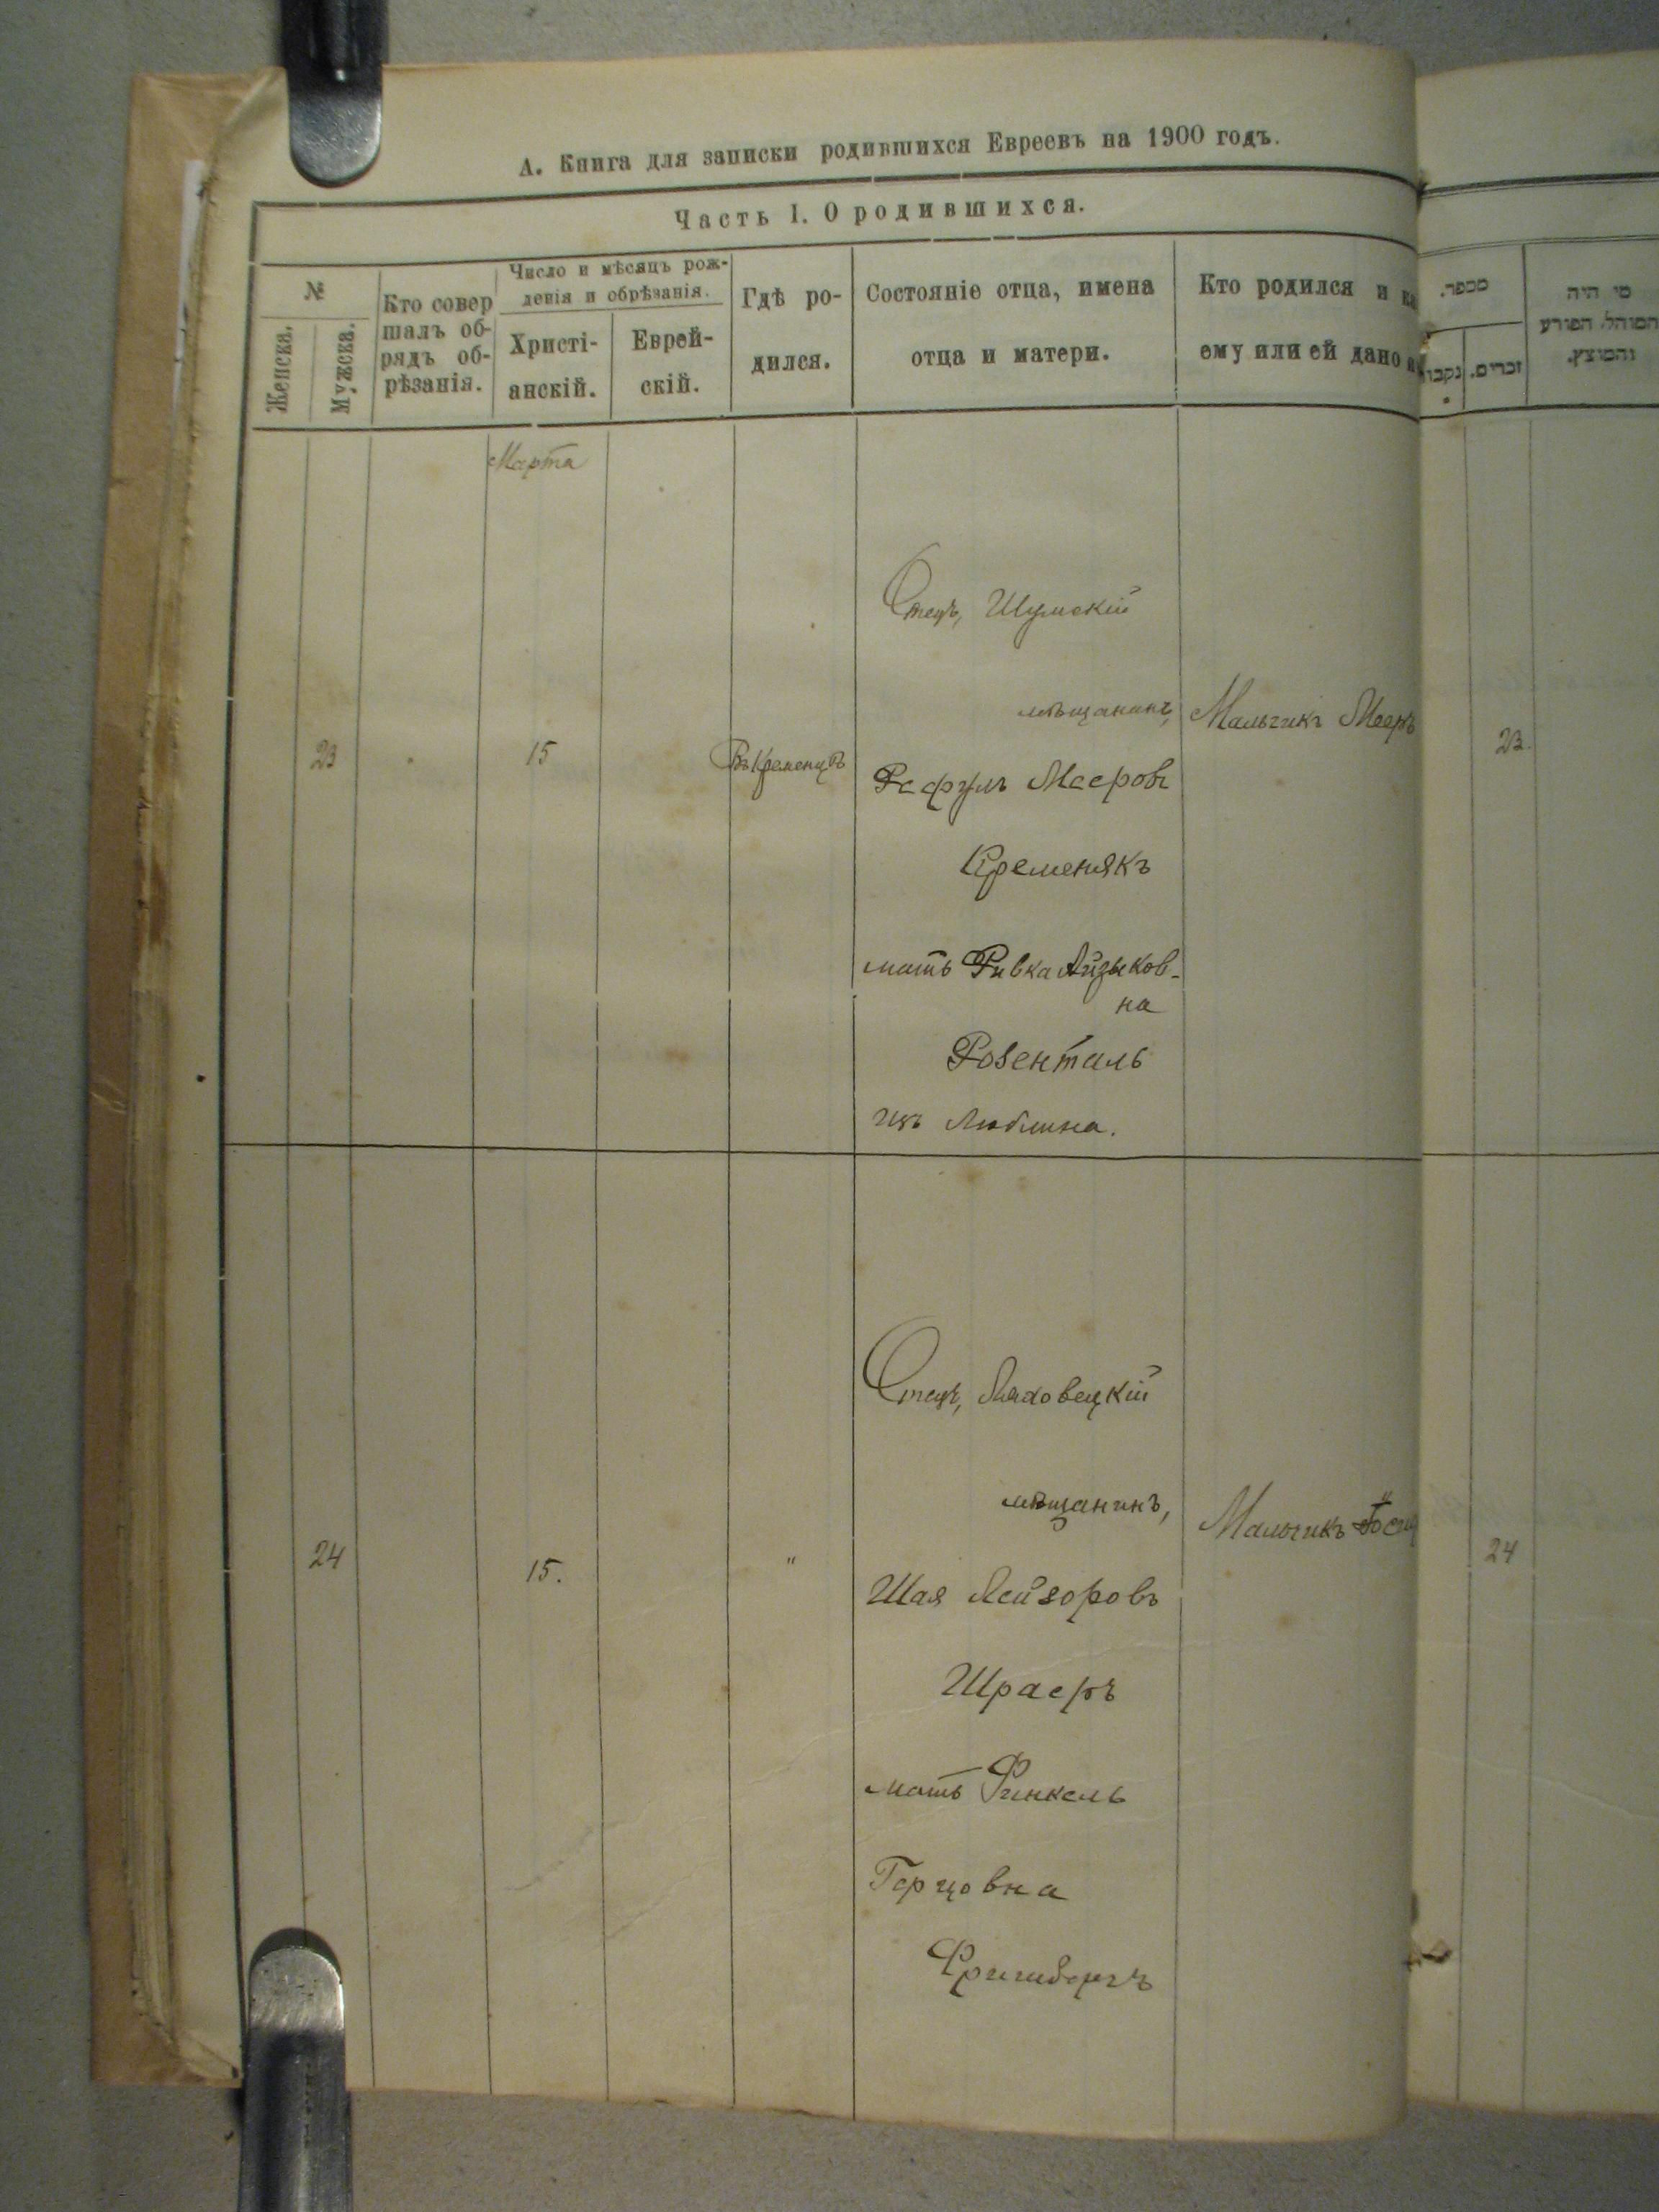 А. Книга для записки родившихся Евреевъ на 1900 годъ.
Часть I. О родившихся.
№
Женска.
Мужска.
Кто совер
шалъ об-
рядъ об-
рѣзанія.
Число и мѣсяцъ рож-
денія и обрѣзанія.
Христі-
анскій.
Еврей-
скій.
Гдѣ ро-
дился.
Состояніе отца, имена
отца и матери.
Кто родился и
ему или ей дано
מספר.
נקבו
זכרים.
מי היה
המוהל, הפורע
והמוצץ.
Марта
23
15
Въ Кременцѣ
Отецъ, Шумскій
мѣщанинъ,
Рафулъ Мееровъ
Кременякъ
мать Ривка Айзыков-
на
Розенталь
изъ Люблина.
Мальчикъ Мееръ
23.
24
15.
"
Отецъ, Ляховецкій
мѣщанинъ,
Шая Лейзоровъ
Шраеръ
мать Финкель
Герцовна
Мальчикъ
24